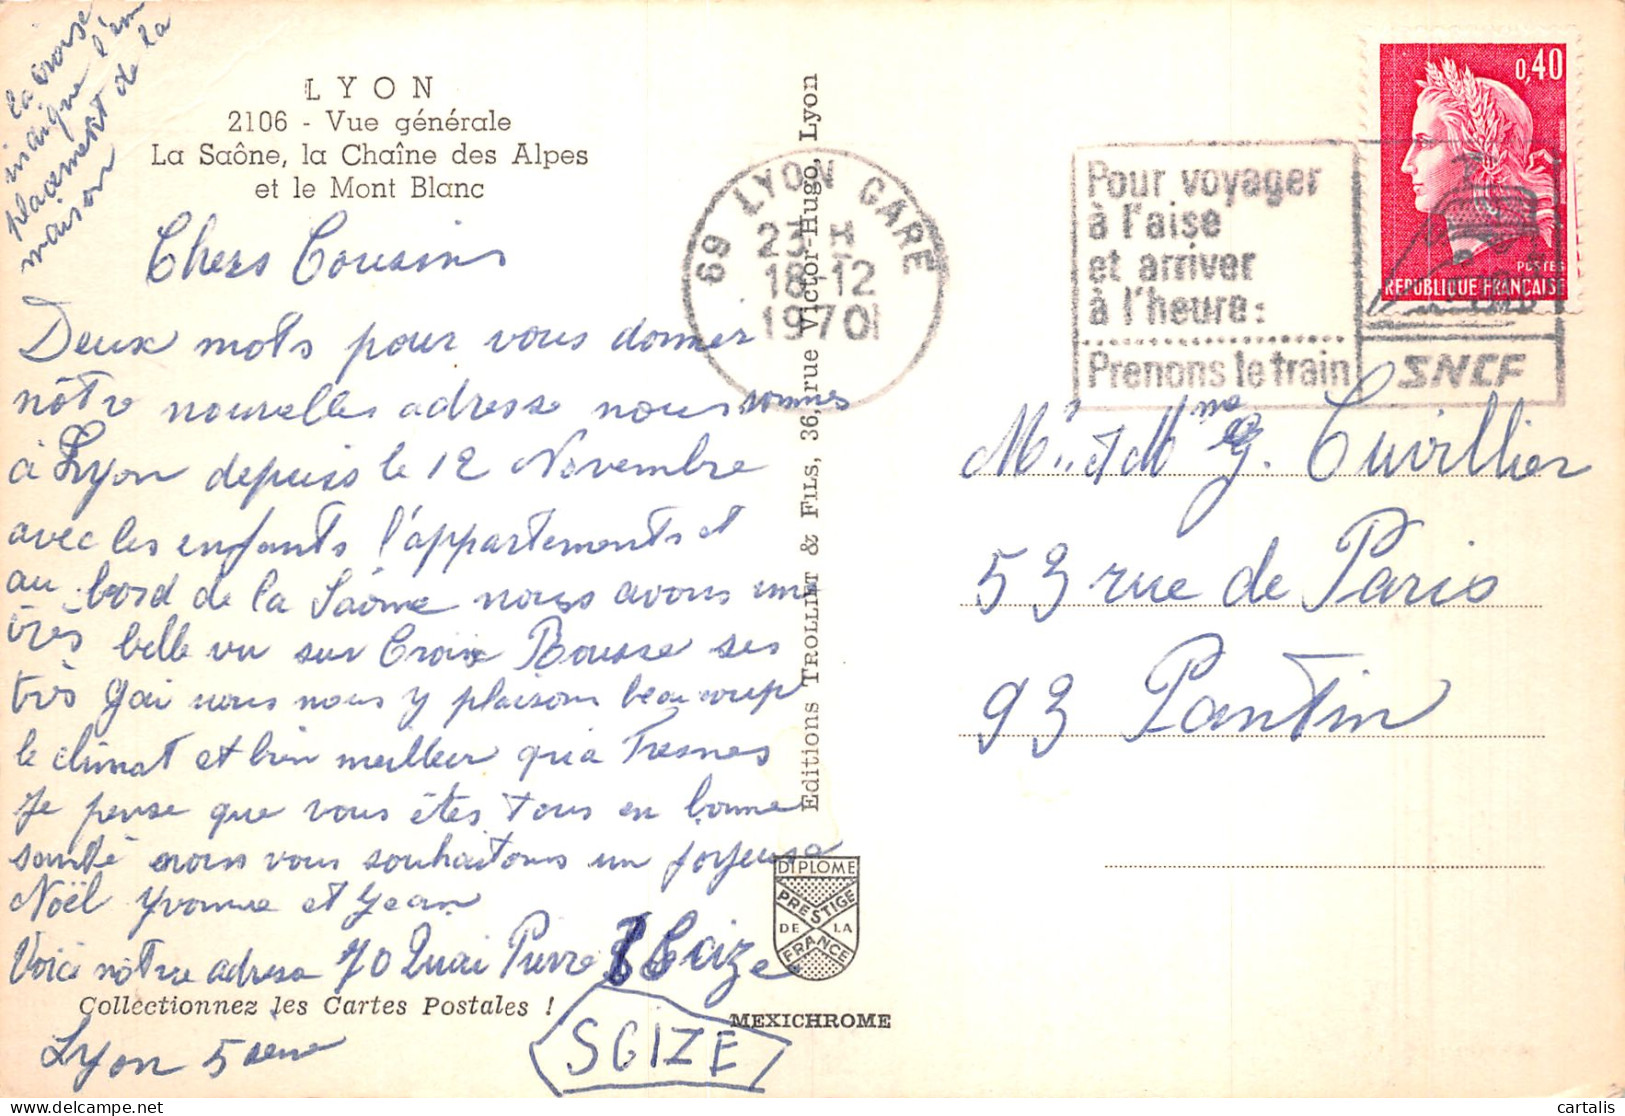 la croise
indique l'em
placement de la
maison
LYON
2106 - Vue générale
La Saône, la Chaîne des Alpes
et le Mont Blanc
Chers Cousins
Deux mots pour vous donner
nôtre nouvelles adresse nous sommes
à Lyon depuis le 12 Novembre
avec les enfants l'appartements et
au bord de la Saône nous avons une
très belle vu sur Croix Bousse ses
très gai nous nous y plaisons beaucoup
le climat et bien meilleur qu'a Fresnes
Je pense que vous êtes tous en bonne
santé nous vous souhaitons un joyeuse
Noël Yvonne et Jean
Voici nôtre adresse 70 Quai Pierre Scize
Collectionnez les Cartes Postales !
Lyon 5ième
SCIZE
Editions TROLLIET & FILS, 36, rue Victor-Hugo, Lyon
DIPLOME
PRESTIGE
DE LA
FRANCE
MEXICHROME
69 LYON GARE
23 H
18-12
1970
Pour voyager
à l'aise
et arriver
à l'heure:
Prenons le train
SNCF
0,40
POSTES
REPUBLIQUE FRANÇAISE
Mr et Mme G. Cuvillier
53 rue de Paris
93 Pantin
cartalis
delcampe.net